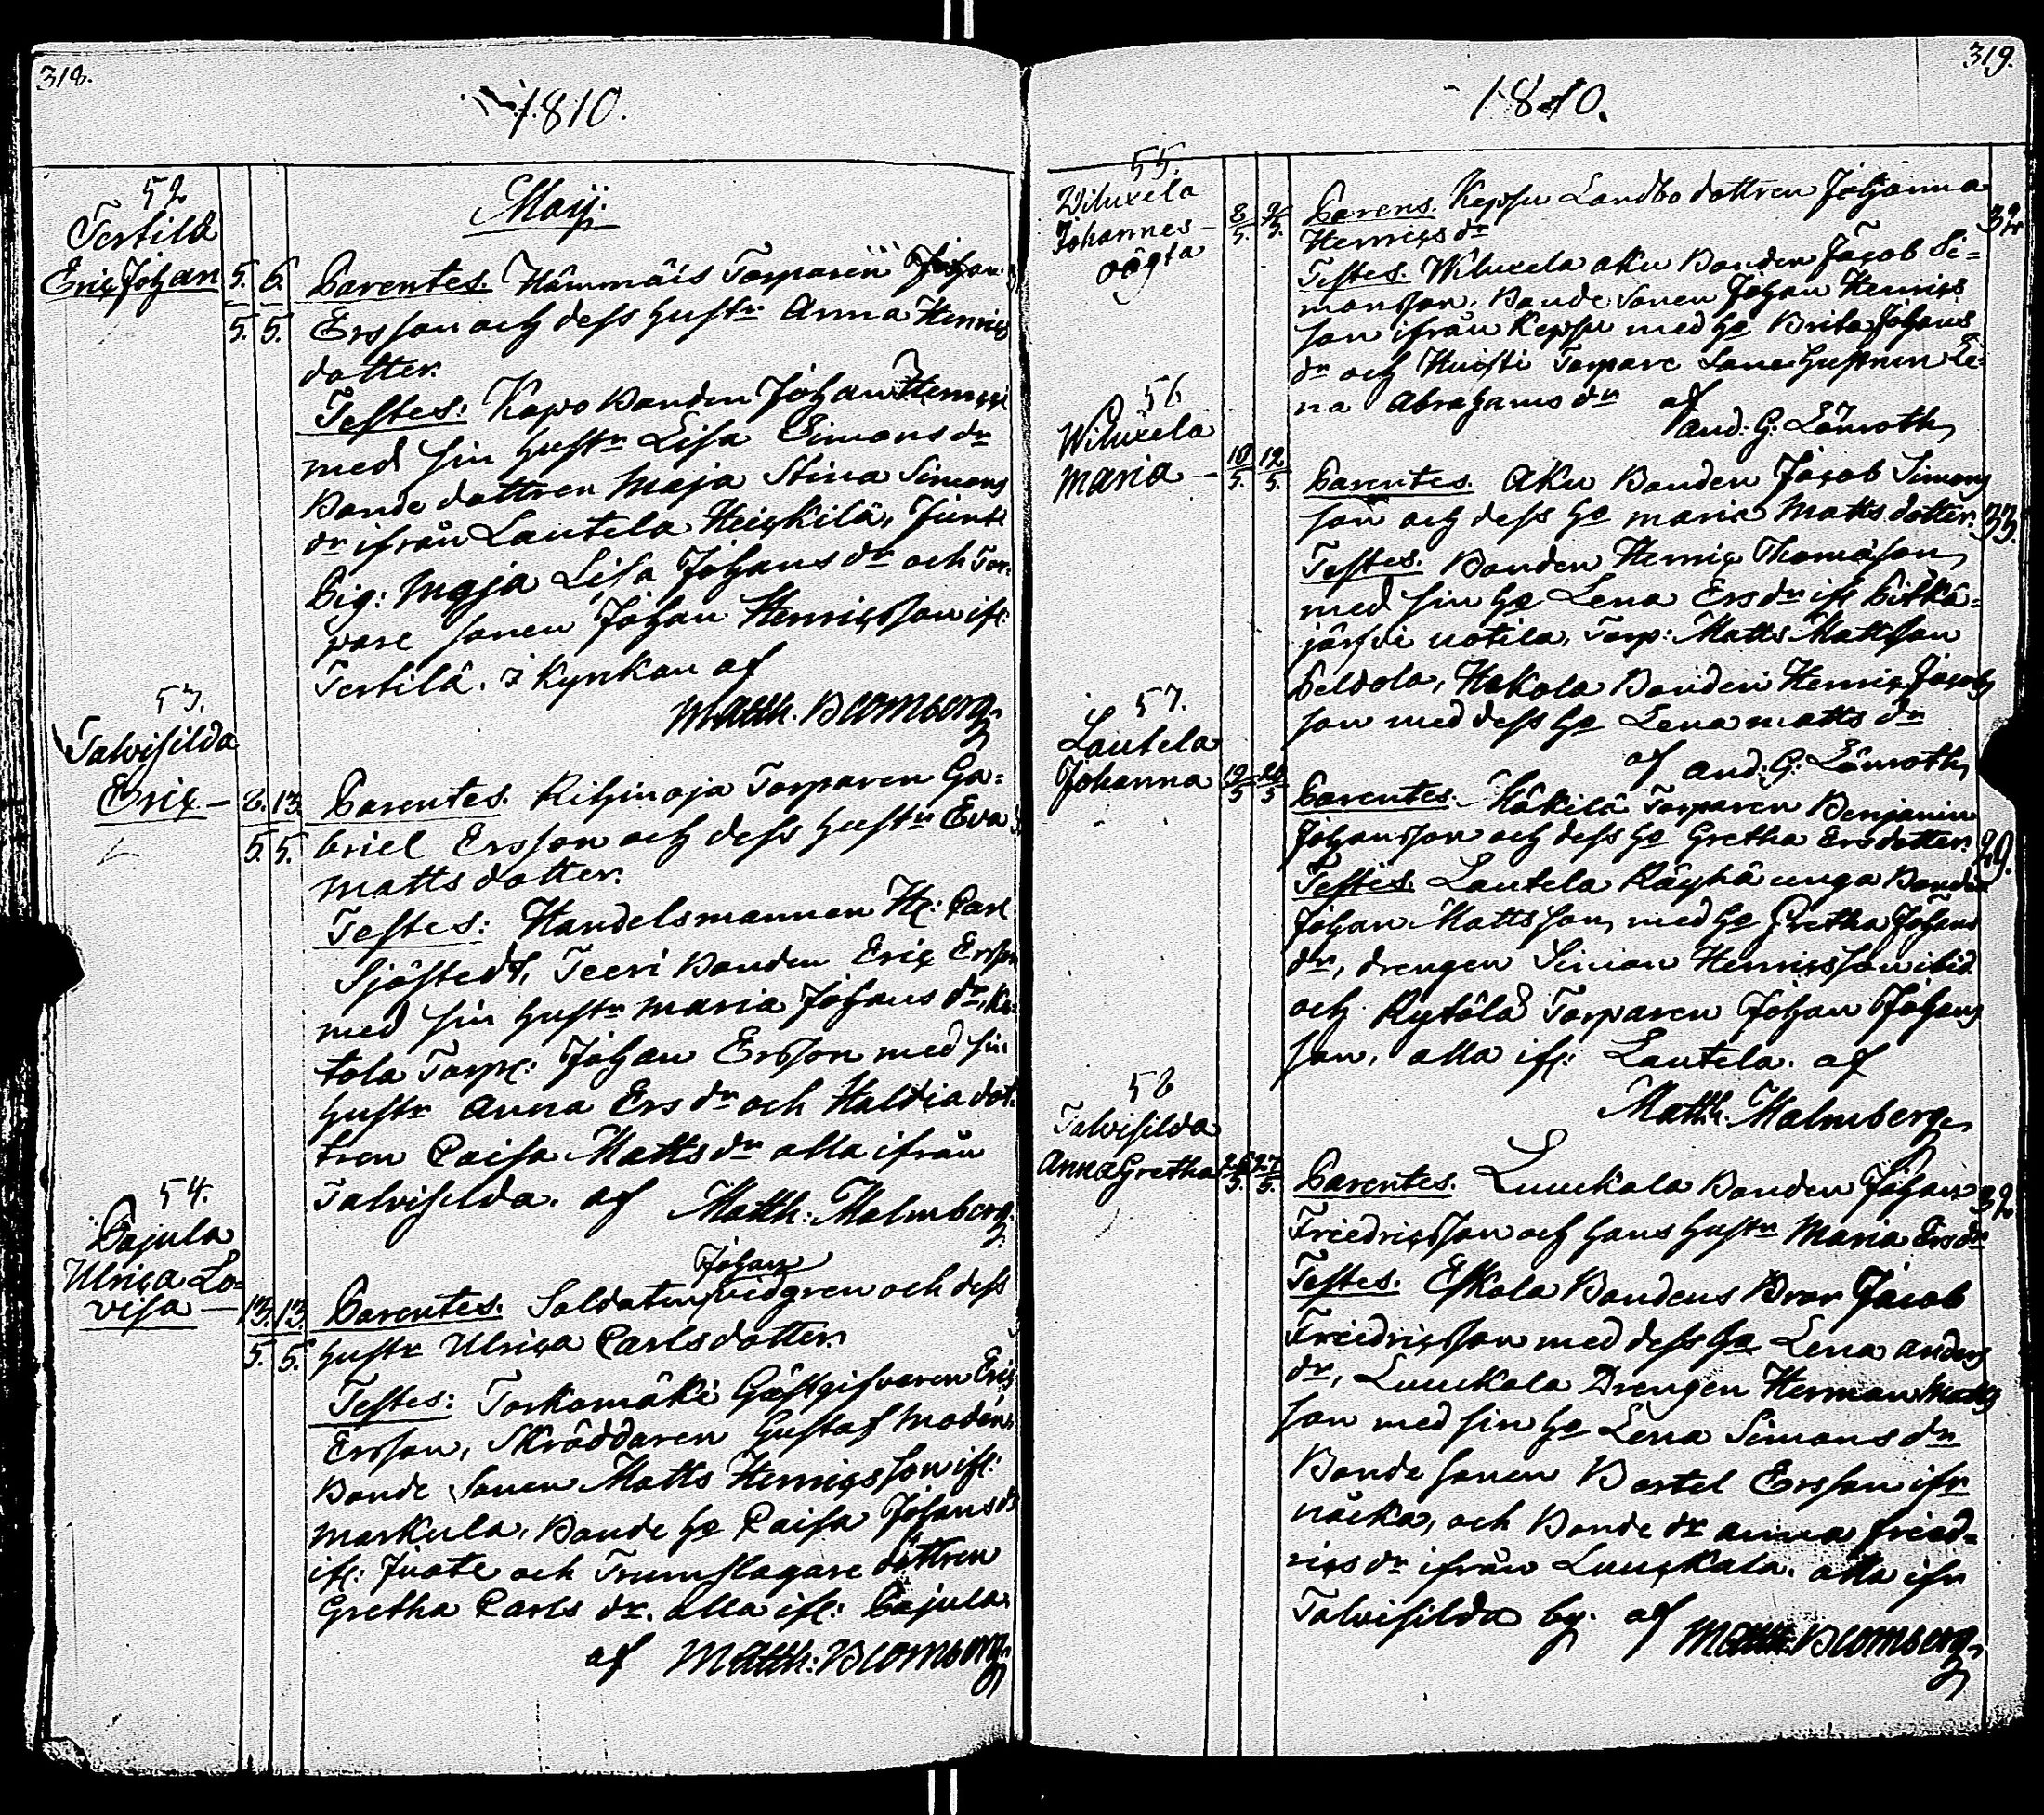 318.
1810.
Maij.
52
Tertilä
Eric Johan 5. 6.
5. 5.
Parentes. Hämmäis Torparen Johan
Ersson och dess hustr Anna Henrics
dotter.
Testes: Kapo Bonden Johan Henrics
med sin hustr Lisa Simons dr
Bonde dottren Maja Stina Simons
dr ifrån Lautela Heickilä,
Pig: Maja Lisa Johans dr och Tor-
pare sonen Johan Henricsson ifr:
Tertilä. i Kyrkan af
Matth. Blomberg
53.
Talvisilda
Eric – 8. 13.
5. 5.
Parentes. Rihinoja Torparen Ga=
briel Ersson och dess hustr Eva
Matts dotter.
Testes: Handelsmannen Hr: Carl
Sjöstedt, Teeri Bonden Eric Ersson
med sin hustr Maria Johans dr, Ka-
tola Torpr: Johan Ersson med sin
hustr Anna Ers dr och Haldia dot-
tren Caisa Matts dr alla ifrån
Talvisilda. af Matth: Malmberg.
54.
Pajula
Ulrica Lo=
visa — 13. 13.
5. 5.
Johan
Parentes. Soldaten Vidgren och dess
hustr Ulrica Carlsdotter.
Testes: Torkomäki Gästgifvaren Eric
Ersson, Skräddaren Gustaf Modén,
Bonde Sonen Matts Henricsson ifr:
Markula, Bonde ho Caisa Johans dr
ifr: Juote och Trumslagare dottren
Gretha Carls dr. alla ifr: Pajula.
af Matth: Blomberg
319.
1810.
55.
Wiluxela
Johannes – 8 9
5. 5.
oägta
Parens. Kepsu Landbo dottren Johanna
Henrics dr 32
Testes. Wiluxela Aku Bonden Jacob Si=
monsson, Bonde Sonen Johan Henrics
son ifrån Kepsu med ho Brita Johans
dr och Huisti Torpare Sone hustrun Le-
na Abrahams dr af
And: G: Lönroth
56
Wiluxela
Maria – 10 12
5. 5.
Parentes. Aku Bonden Jacob Simons
son och dess ho Maria Matts dotter. 33.
Testes. Bonden Henric Thomason
med sin ho Lena Ers dr ifr Pitkä=
järfvi Uotila, Torp: Matts Mattson
Peldola, Hakola Bonden Henric Jacobs
son med dess ho Lena Matts dr
af And: G: Lönroth
57.
Lautela
Johanna 19
5 5
Parentes. Häkilä Torparen Benjamin
Johansson och dess ho Gretha Ersdotter. 29.
Testes. Lautela Räyhä unga Bonden
Johan Mattsson, med ho Gretha Johans
dr, drengen Simon Henricsson ibid.
och Rytölä Torparen Johan Johans
son, alla ifr: Lautela. af
Matth. Malmberg
58
Talvisilda
Anna Gretha 26 27
5. 5.
Parentes. Luuckala Bonden Johan 32
Friedricsson och hans hustr Maria Ers dr
Testes. Eskola Bondens Bror Jacob
Friedricsson med dess ho Lena Anders
dr, Luuckala Drengen Herman Matts
son med sin ho Lena Simons dr
Bonde sonen Bertel Ersson ifr
Näcka, och Bonde dr Anna Fried=
rics dr ifrån Luuckala. alla ifr
Talvisilda by. af Matth: Blomberg